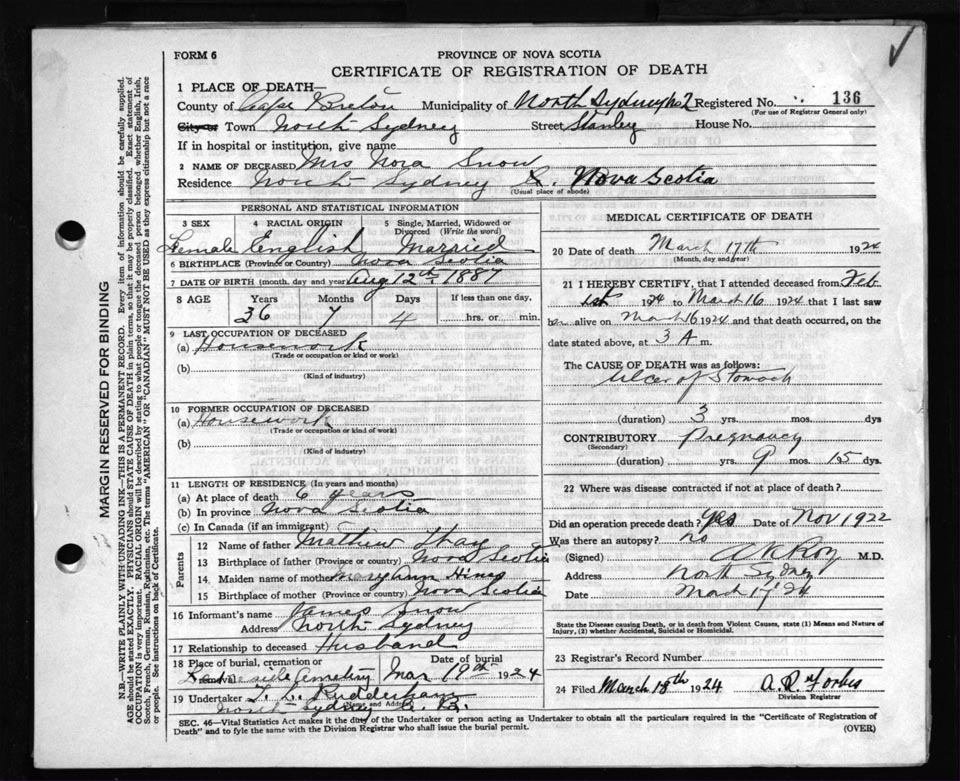 FORM 6
PROVINCE OF NOVA SCOTIA
CERTIFICATE OF REGISTRATION OF DEATH
1 PLACE OF DEATH—
County of Cape Breton Municipality of North Sydney No 2 Registered No. 136
(For use of Registrar General only)
City or Town North Sydney Street Stanley House No.
If in hospital or institution, give name
2 NAME OF DECEASED Mrs Nora Snow
Residence North Sydney Nova Scotia
(Usual place of abode)
PERSONAL AND STATISTICAL INFORMATION
3 SEX 4 RACIAL ORIGIN 5 Single, Married, Widowed or Divorced (Write the word)
Female English Married
6 BIRTHPLACE (Province or Country) Nova Scotia
7 DATE OF BIRTH (month, day and year) Aug 12th 1887
8 AGE Years Months Days If less than one day,
36 7 4 hrs. or min.
9 LAST OCCUPATION OF DECEASED
(a) Housework
(Trade or occupation or kind or work)
(b)
(Kind of industry)
10 FORMER OCCUPATION OF DECEASED
(a) Housework
(Trade or occupation or kind of work)
(b)
(Kind of industry)
11 LENGTH OF RESIDENCE (In years and months)
(a) At place of death 6 years
(b) In province Nova Scotia
(c) In Canada (if an immigrant)
Parents
12 Name of father Mathew
13 Birthplace of father (Province or country) Nova Scotia
14 Maiden name of mother Mary Ann Hines
15 Birthplace of mother (Province or country) Nova Scotia
16 Informant's name James Snow
Address North Sydney
17 Relationship to deceased Husband
18 Place of burial, cremation or Date of burial
Cemetery Mar 19th 1924
19 Undertaker T. L. Rudderham
(Name and Address)
North Sydney C. B.
MEDICAL CERTIFICATE OF DEATH
20 Date of death March 17th 1924
(Month, day and year)
21 I HEREBY CERTIFY, that I attended deceased from Feb
1st 1924 to March 16 1924 that I last saw
her alive on March 16 1924 and that death occurred, on the
date stated above, at 3 A m.
The CAUSE OF DEATH was as follows:
Ulcer of Stomach
(duration) 3 yrs. mos. dys
CONTRIBUTORY Pregnancy
(Secondary)
(duration) yrs. 9 mos. 15 dys.
22 Where was disease contracted if not at place of death?
Did an operation precede death? Yes Date of Nov 1922
Was there an autopsy? no
(Signed) A K Roy M.D.
Address North Sydney
Date March 17, 24
State the Disease causing Death, or in death from Violent Causes, state (1) Means and Nature of
Injury, (2) whether Accidental, Suicidal or Homicidal.
23 Registrar's Record Number
24 Filed March 18th 1924 A. R. Forbes
Division Registrar
SEC. 46—Vital Statistics Act makes it the duty of the Undertaker or person acting as Undertaker to obtain all the particulars required in the "Certificate of Registration of
Death" and to fyle the same with the Division Registrar who shall issue the burial permit.
(OVER)
MARGIN RESERVED FOR BINDING
N.B.—WRITE PLAINLY WITH UNFADING INK—THIS IS A PERMANENT RECORD. Every item of information should be carefully supplied.
AGE should be stated EXACTLY. PHYSICIANS should STATE CAUSE OF DEATH in plain terms, so that it may be properly classified. Exact statement of
OCCUPATION is very important. RACIAL ORIGIN will be described by stating to what people or tongue the deceased person belonged whether English, Irish,
Scotch, French, German, Russian, Ruthenian, etc. The terms "AMERICAN" OR "CANADIAN" MUST NOT BE USED as they express citizenship but not a race
or people. See instructions on back of Certificate.